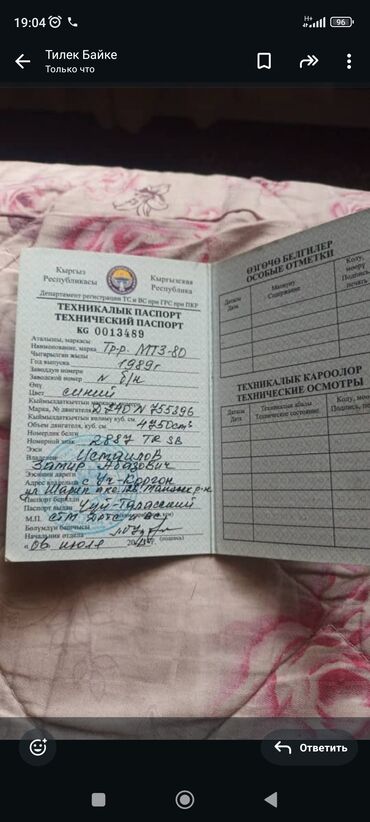 19:04
H+
96
Тилек Байке
Только что
Кыргыз Республикасы
Кыргызская Республика
Департамент регистрации ТС и ВС при ГРС при ПКР
ТЕХНИКАЛЫК ПАСПОРТ
ТЕХНИЧЕСКИЙ ПАСПОРТ
KG 0013489
Аталышы, маркасы
Наименование, марка Тр-р. МТЗ-80
Чыгарылган жылы
Год выпуска 1989г
Заводдун номери
Заводской номер N б/н
Өңү
Цвет синий
Марка, № двигателя Д 240 N 755396
Объем двигателя, куб. см 4750см³
Номерлик белги
Номерной знак 2887 TR SB
Ээси
Владелец Исмаилов
Замир Абазович
Ээсинин дареги
Адрес владельца с Уч-Коргон
Паспорт берилди
Паспорт выдан Чуй-Таласский
М.П.
Бөлүмдүн башчысы
Начальник отдела
(подпись)
06 июля
ӨЗГӨЧӨ БЕЛГИЛЕР
ОСОБЫЕ ОТМЕТКИ
Датасы
Дата
Мазмуну
Содержание
Колу, мөөрү
Подпись, печать
ТЕХНИКАЛЫК КАРООЛОР
ТЕХНИЧЕСКИЕ ОСМОТРЫ
Датасы
Дата
Техникалык абалы
Техническое состояние
Колу, мөөрү
Ответить